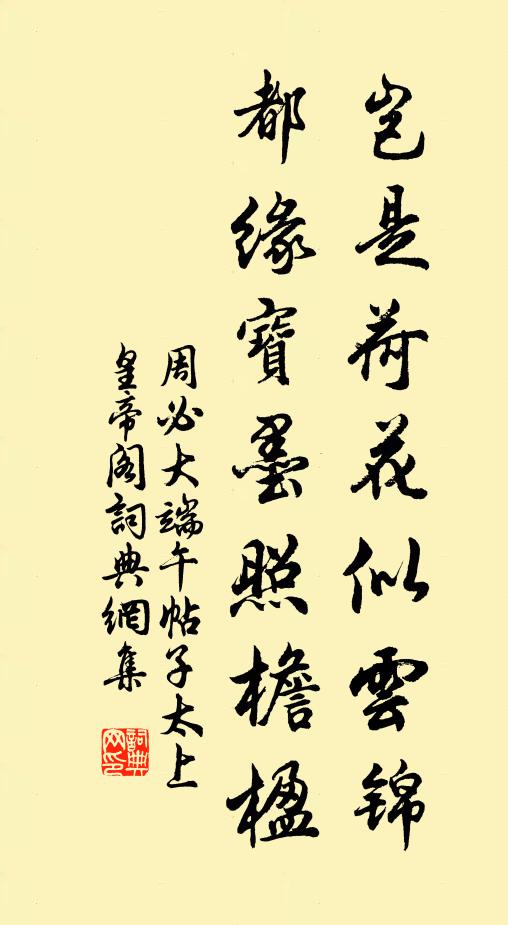 豈是荷花似雲錦
都緣寶墨照檐楹
周必大端午帖子太上
皇帝阁詞典網集
詞典
网印